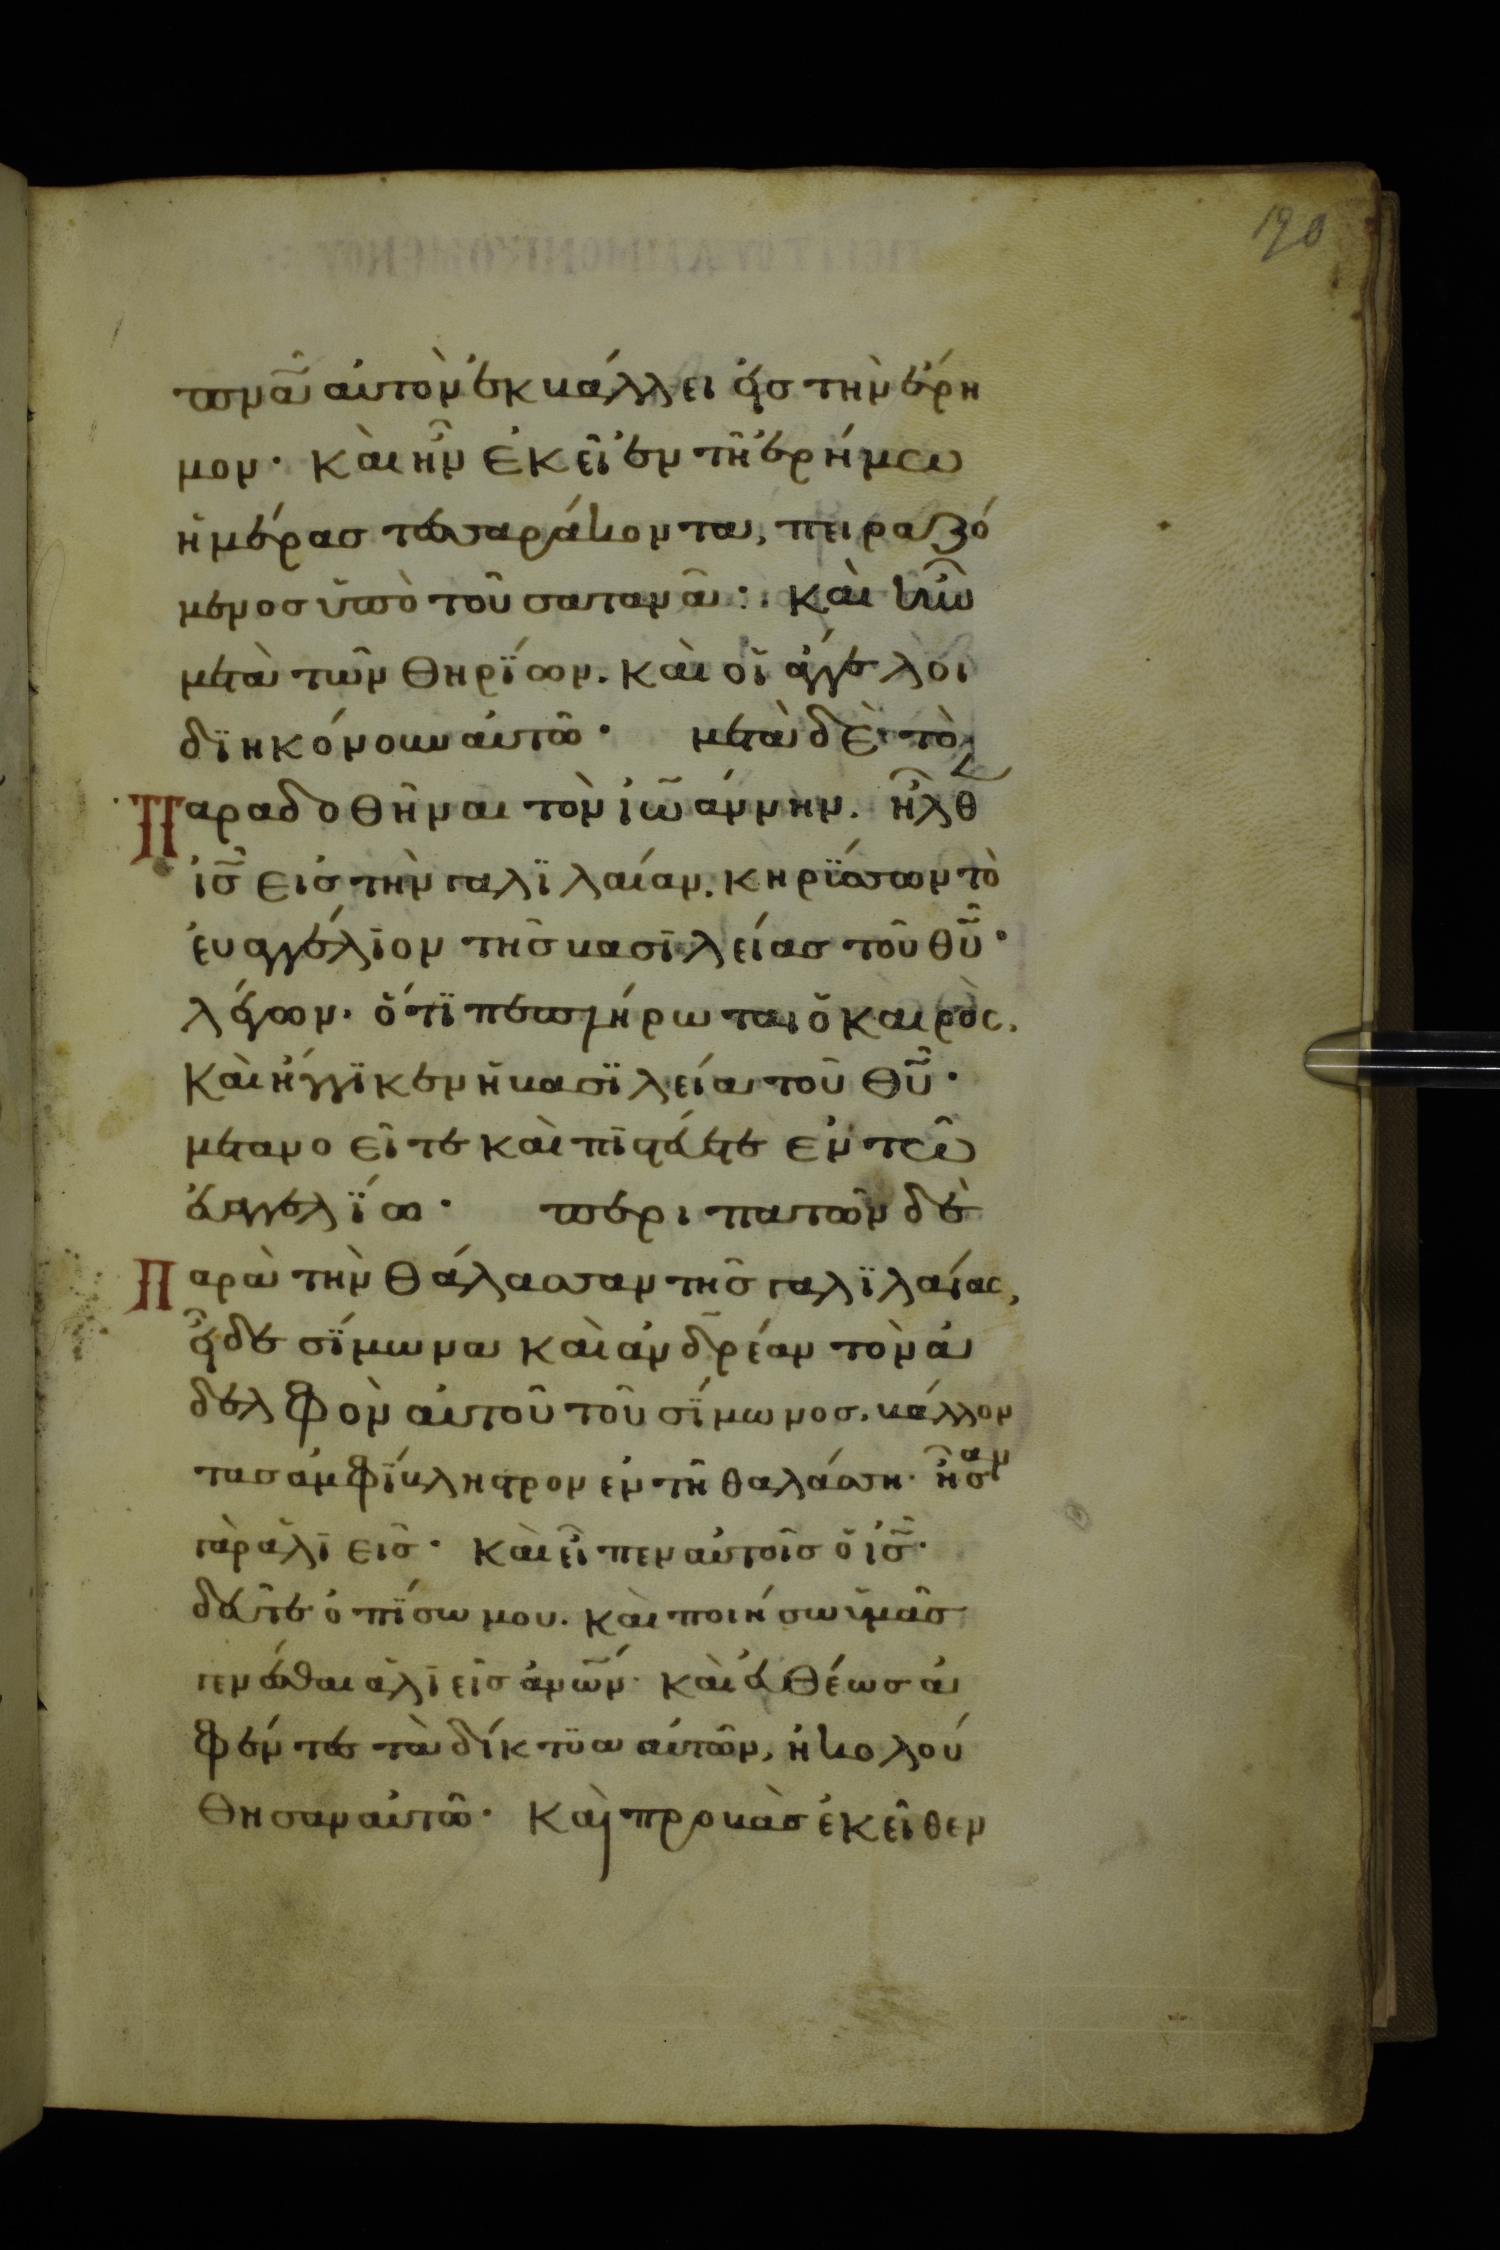 πνᾶ αὐτὸν ἐκβάλλει εἰς τὴν ἔρη
μον· καὶ ἦν ἐκεῖ ἐν τῆ ἐρήμω
ἡμέρας τεσσαράκοντα, πειραζό
μενος ὑπὸ τοῦ σατανᾶ:. καὶ ἦν
μετὰ τῶν θηρΐων. καὶ οἱ ἄγγελοι
δϊηκόνουν αὐτῶ· μετὰ δὲ τὸ
Παραδοθῆναι τὸν ἰω̃άννην. ἦλθ
ἰς̃ εἰς τὴν γαλϊλαίαν. κηρϋσσων τὸ
ἐυαγγέλϊον τῆς βασϊλείας τοῦ θῦ·
λέγων. ὅτϊ πεπλήρωται ὁ καιρὸς.
καὶ ἤγγϊκεν ἡ βασϊλεία τοῦ θῦ·
μετανοεῖτε καὶ πιστεύετε ἐν τῶ
εὐαγγελϊω· περιπατῶν δὲ
Παρὰ τὴν θάλασσαν τῆς γαλϊλαίας,
εἶδε σϊμωνα καὶ ἀνδρέαν τὸν ἀ
δελφὸν αὐτοῦ τοῦ σϊμωνος. βάλλον
τας ἀμφϊβληστρον ἐν τῆ θαλάσση· ἦσαν
γὰρ ἁλϊεῖς· καὶ εἶπεν αὐτοῖς ὁ ἰς̃·
δεῦτε ὀπϊσω μου. καὶ ποιήσω ὑμᾶς
γενέσθαι ἁλϊεῖς ἀνω̃ν· καὶ εὐθέως ἀ
φέντες τὰ δίκτϋα αὐτῶν, ἠκολού
θησαν αὐτῶ· καὶ προβὰς ἐκεῖθεν